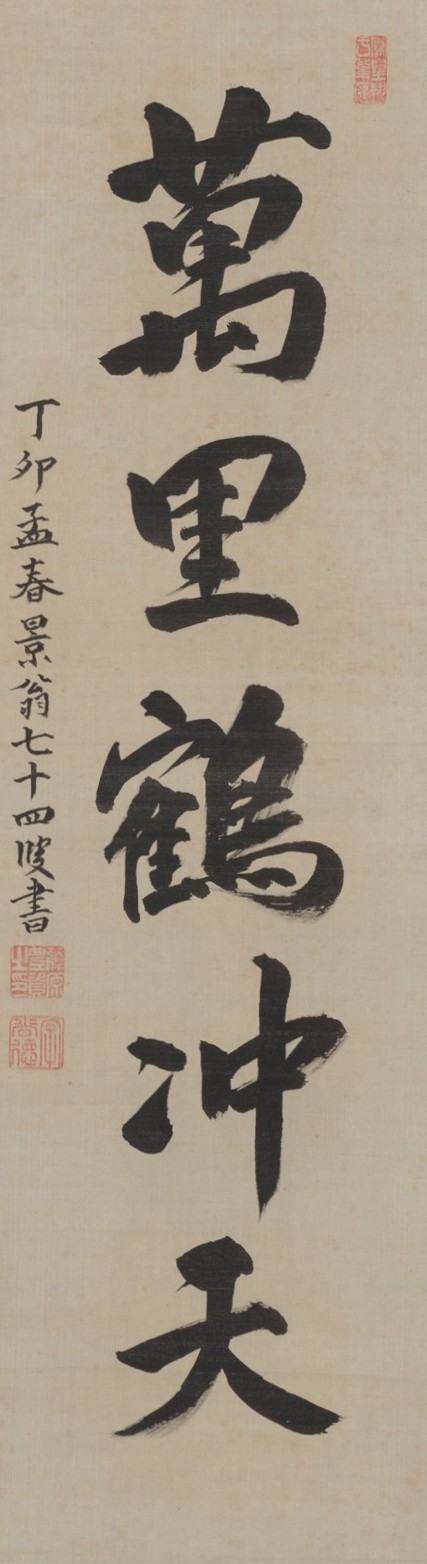 萬里鶴冲天
丁卯孟春景翁七十四叟書